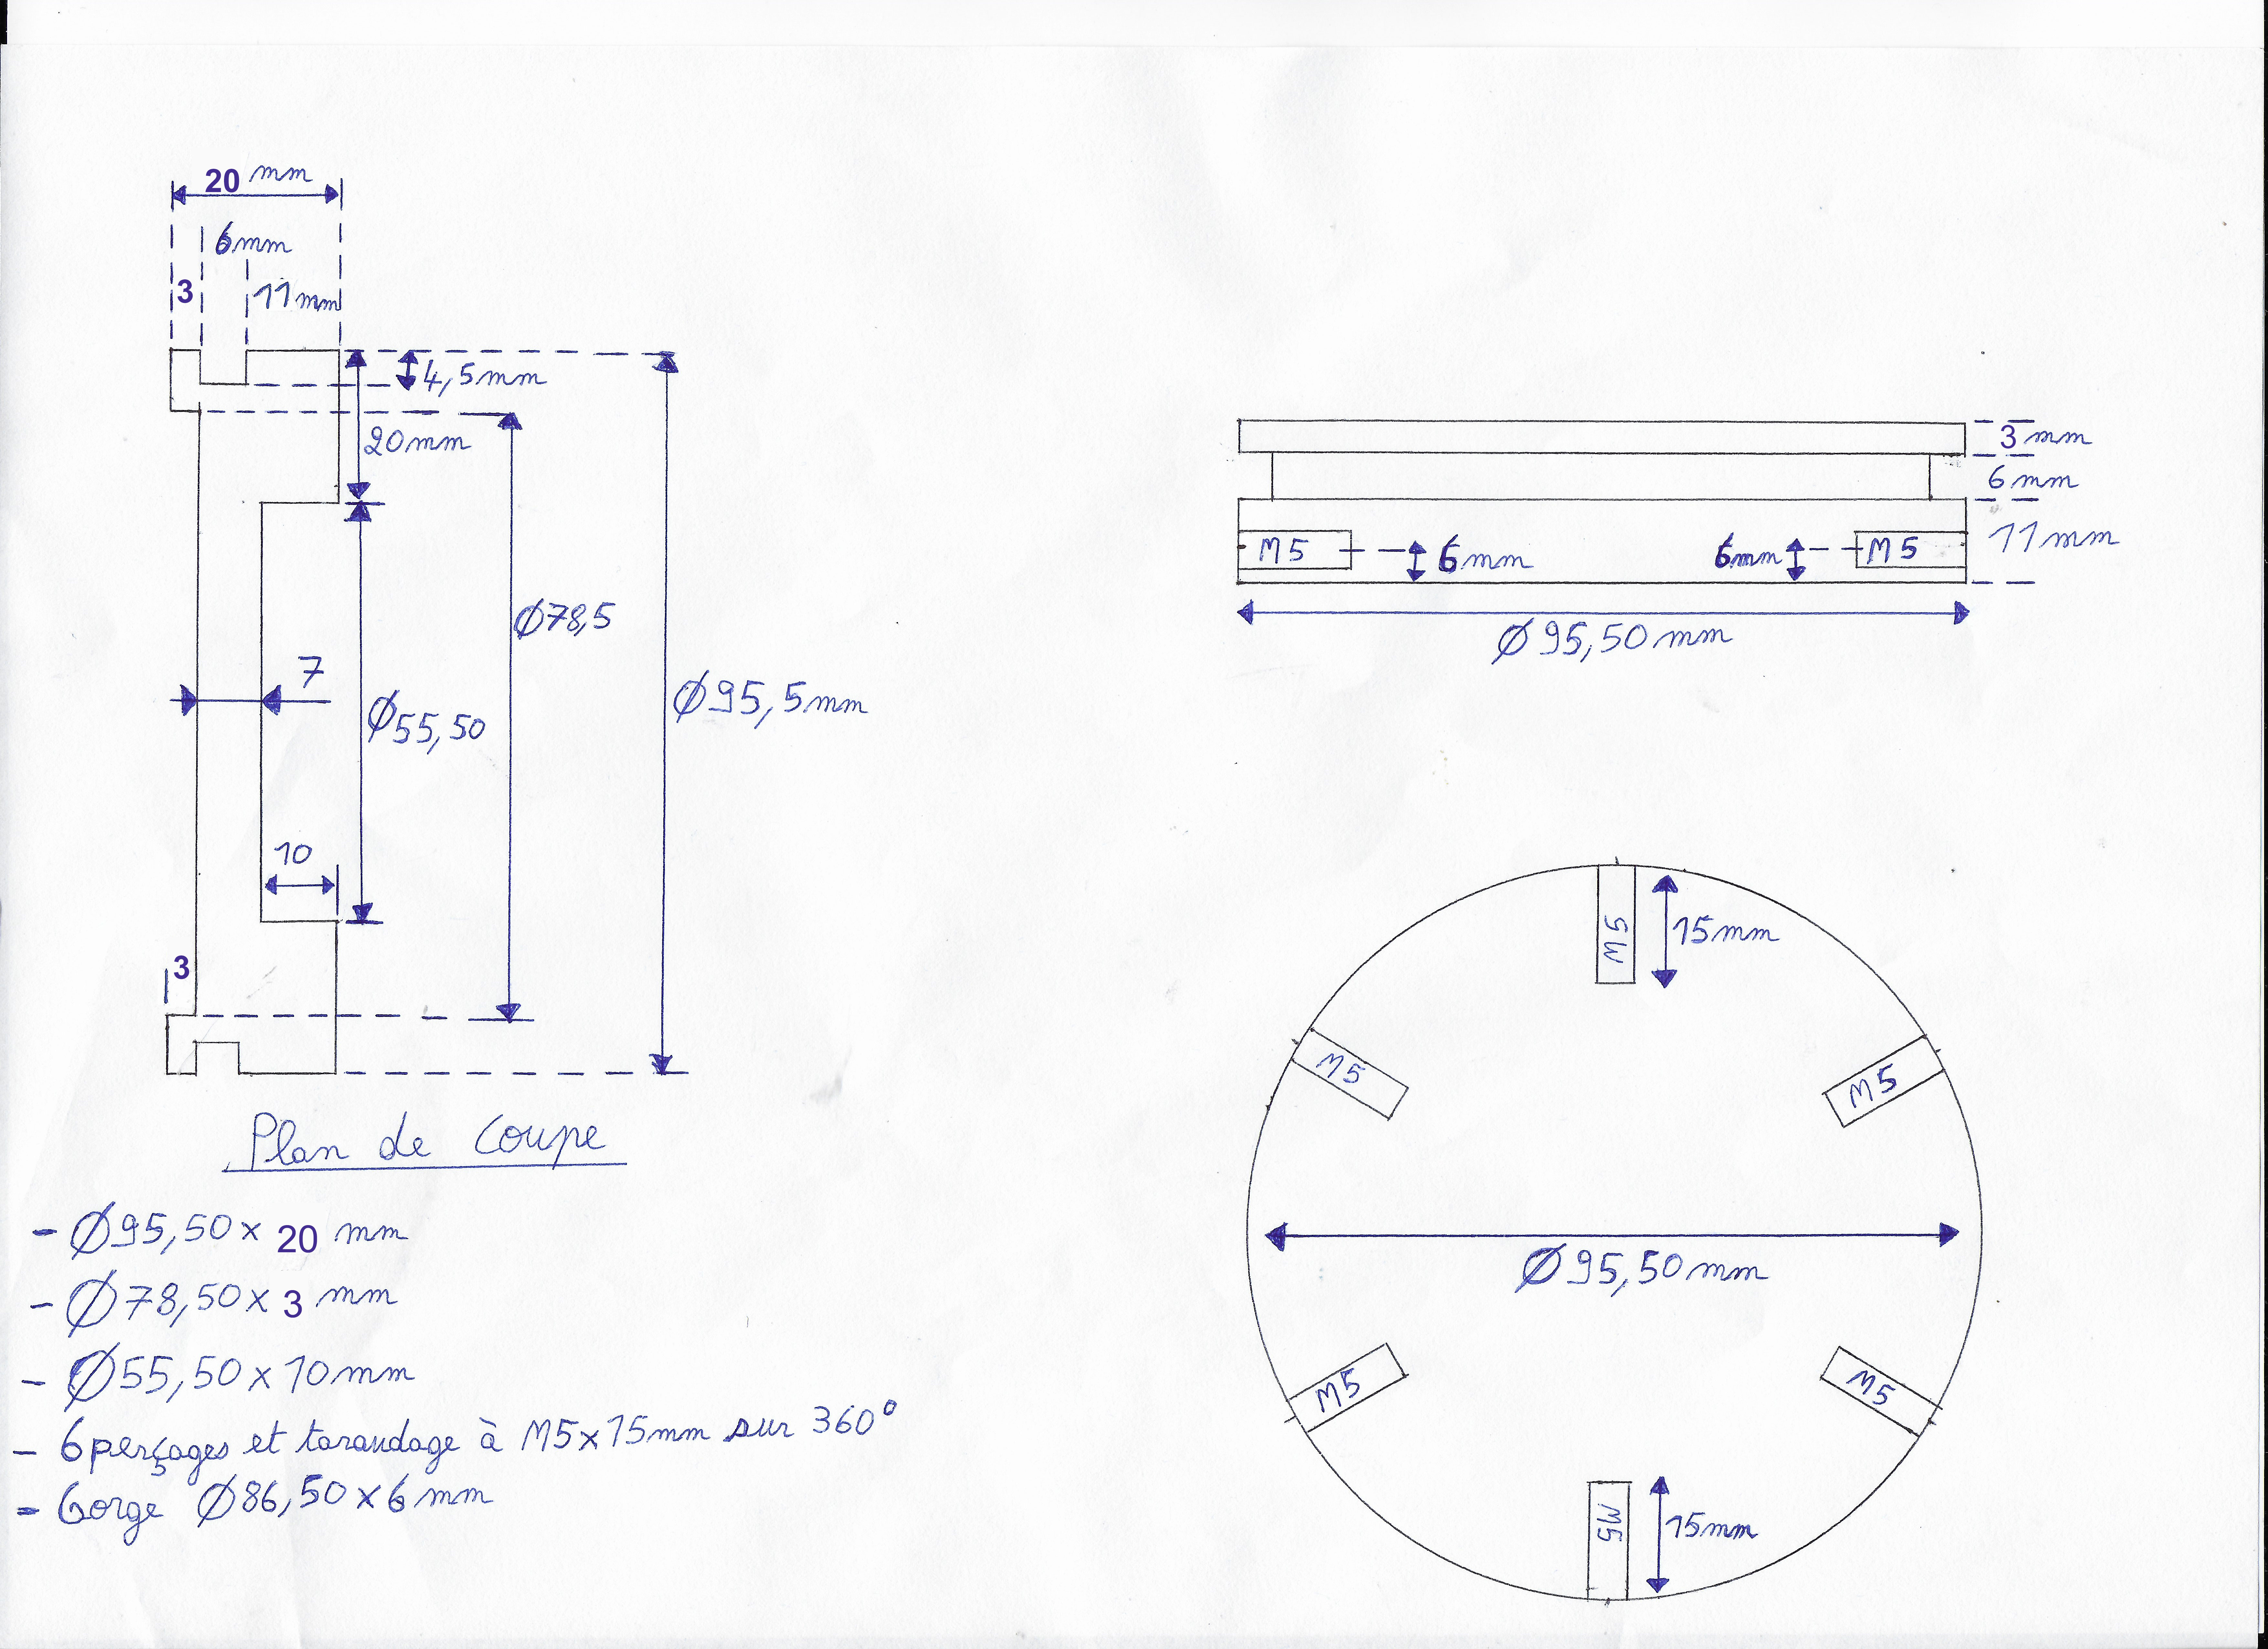 20 mm
6mm
3
11mm
4,5mm
20mm
Ø78,5
Ø95,5mm
7
Ø55,50
10
3
Plan de Coupe
- Ø95,50 x 20 mm
- Ø78,50 x 3 mm
- Ø55,50 x 10mm
- 6 perçages et taraudage à M5x15mm sur 360°
- Gorge Ø86,50 x 6 mm
3 mm
6 mm
11mm
M5
6mm
6mm
M5
Ø95,50mm
M5
15mm
M5
M5
Ø95,50mm
M5
M5
M5
15mm